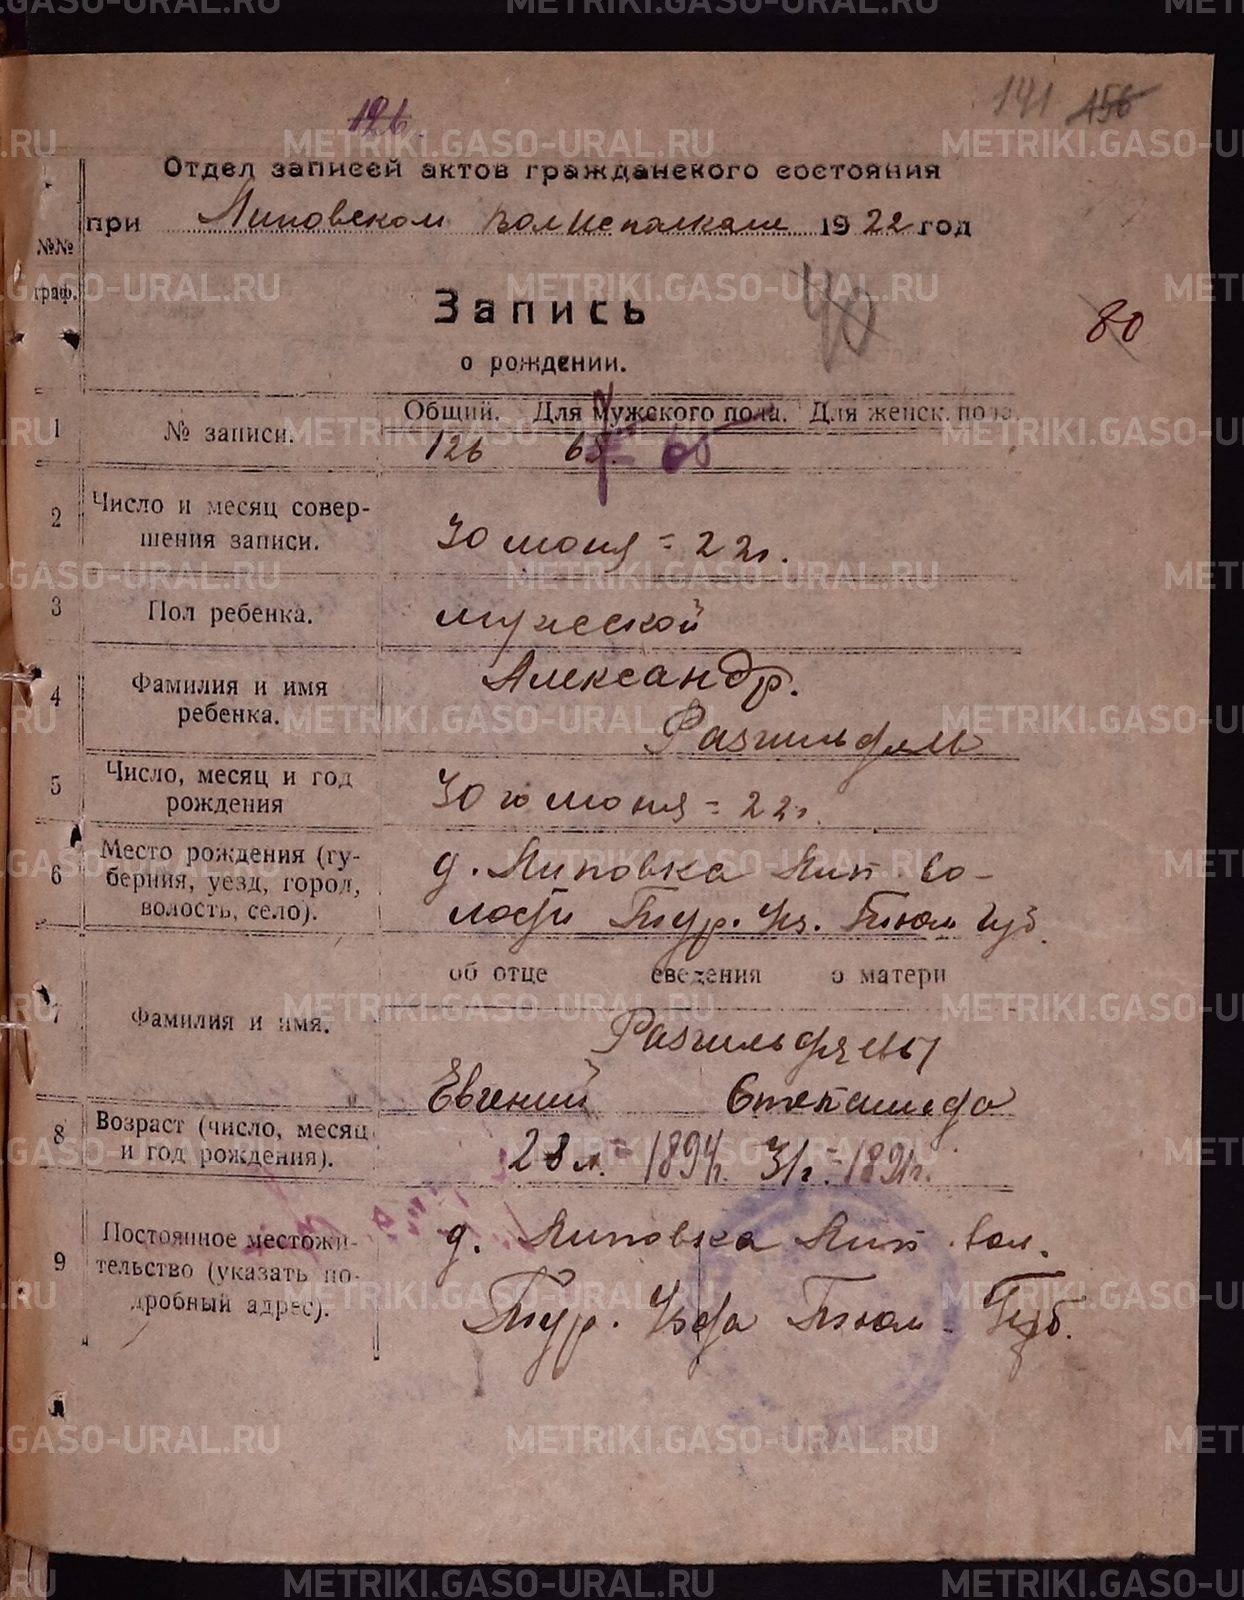 141 156
126.
Отдел записей актов гражданского состояния
при Липовском волисполкоме 1922 год
№№
граф.
Запись
40
80
о рождении.
1 № записи. Общий. Для мужского пола. Для женск. пола.
126 65
2 Число и месяц совер-
шения записи.
30 июня = 22 г.
3 Пол ребенка. мужской
4 Фамилия и имя
ребенка.
Александр.
5 Число, месяц и год
рождения
30 го июня = 22 г.
6 Место рождения (гу-
берния, уезд, город,
волость, село).
д. Липовка Лип. во-
лости Тур. Уз. Тюм Губ.
об отце сведения о матери
7 Фамилия и имя.
Евгений
8 Возраст (число, месяц
и год рождения).
28 л. = 1894 г. 31 г. = 1891 г.
9 Постоянное местожи-
тельство (указать по-
дробный адрес).
д. Липовка Лип вол.
Тур. Узда Тюм. Губ.
METRIKI.GASO-URAL.RU